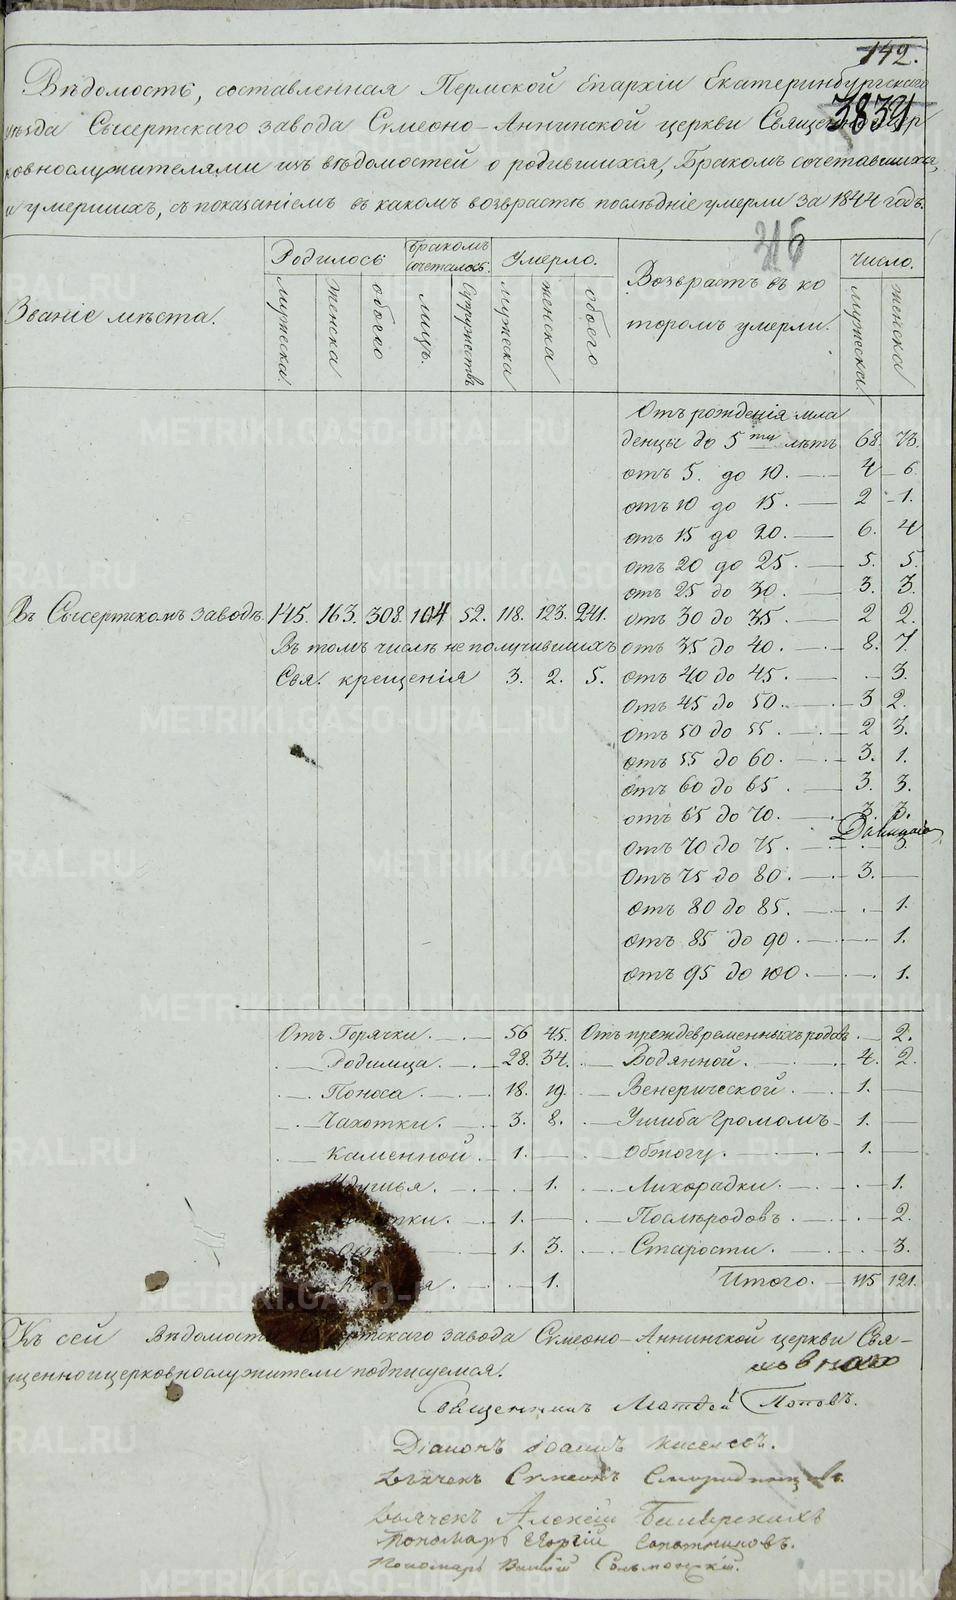 142.
3839
Вѣдомость, составленная Пермской Епархіи Екатеринбургскаго
уѣзда Сысертскаго завода Сѵмеоно-Аннинской церкви Священноцер
ковнослужителями изъ вѣдомостей о родившихся, Бракомъ сочетавшихся,
и умершихъ, съ показаніемъ въ какомъ возврастѣ послѣдніе умерли за 1844 годъ.
316
Званіе мѣста.
Родилось
Бракомъ сочеталось.
Умерло.
Возврастъ въ ко
торомъ умерли.
Число.
мужеска.
женска
обоего
лицъ.
Супружествъ
мужеска
женска
обоего
мужеска
женска
Отъ рожденія мла
денцы до 5ти лѣтъ 68. 73.
отъ 5. до 10. 4 6.
отъ 10 до 15. 2 1.
отъ 15 до 20. 6. 4
отъ 20 до 25. 5. 5.
отъ 25 до 30. 3. 3.
Въ Сысертскомъ заводѣ. 145. 163. 308. 104 52. 118. 123. 241. отъ 30 до 35. 2 2.
Въ томъ числѣ не получившихъ отъ 35 до 40. 8. 7.
Свя. крещенія 3. 2. 5. отъ 40 до 45. 3.
отъ 45 до 50. 3 2.
отъ 50 до 55. 2 3.
отъ 55 до 60. 3. 1.
отъ 60 до 65. 3. 3.
отъ 65 до 70. 3. 3.
отъ 70 до 75. 3.
отъ 75 до 80. 3.
отъ 80 до 85. 1.
отъ 85 до 90. 1.
отъ 95 до 100. 1.
Отъ Горячки. 56 45. Отъ преждевременныхъ родовъ 2.
Родимца. 28. 34. Водянной. 4. 2.
Поноса 18. 19. Венерической. 1.
Чахотки. 3. 8. Ушиба Громомъ 1.
Каменной. 1. Обжогу. 1.
Удушья. 1. Лихорадки. 1.
1. Послѣродовъ. 2.
1. 3. Старости. 3.
1. Итого. 115 121.
Къ сей Вѣдомости Сысертскаго завода Сѵмеоно-Аннинской церкви Свя-
щенноицерковнослужители подписуемся.
Священникъ Матѳей Поповъ.
Діаконъ Іоаннъ Киселевъ.
Дьячекъ Сѵмеонъ Смородинцовъ.
Дьячекъ Алексій
Пономарь Георгій Сапожниковъ.
Пономарь
METRIKI.GASO-URAL.RU